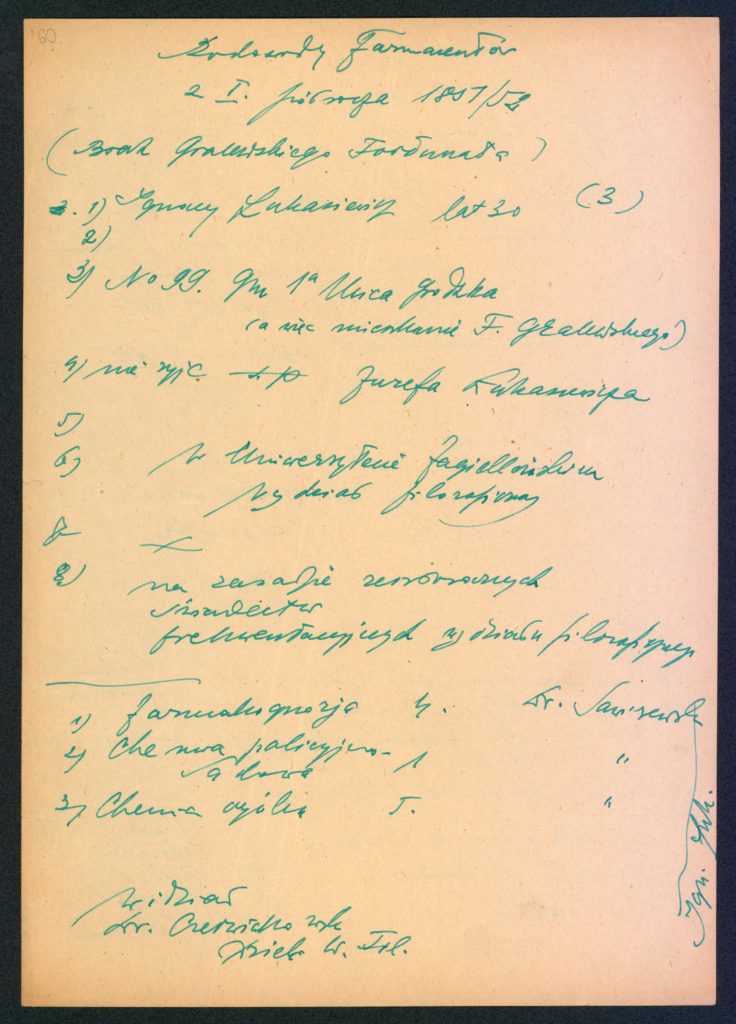 60
Rodowody Farmaceutów
z I. półrocza 1851/52
(Brak Gralewskiego Fortunata)
1) Ignacy Łukasiewicz lat 30 (3)
2)
3) No 99. Gm 1a Ulica Grodzka
(a więc mieszkanie F. Gralewskiego)
4) nie żyje Józefa Łukasiewicza
5)
6) w Uniwersytecie Jagiellońskim
wydział filozoficzny
7
8) na zasadzie
świadectw
frekwentacyjnych wydziału filozoficznego
1) farmakognozja 4. Dr. Sawiczewski
2) Chemia policyjno-
sądowa 1 "
3) Chemia ogólna 5. "
Ign. Łuk.
widział
Dr. Czerwiakowski
Dziek. W. Fil.